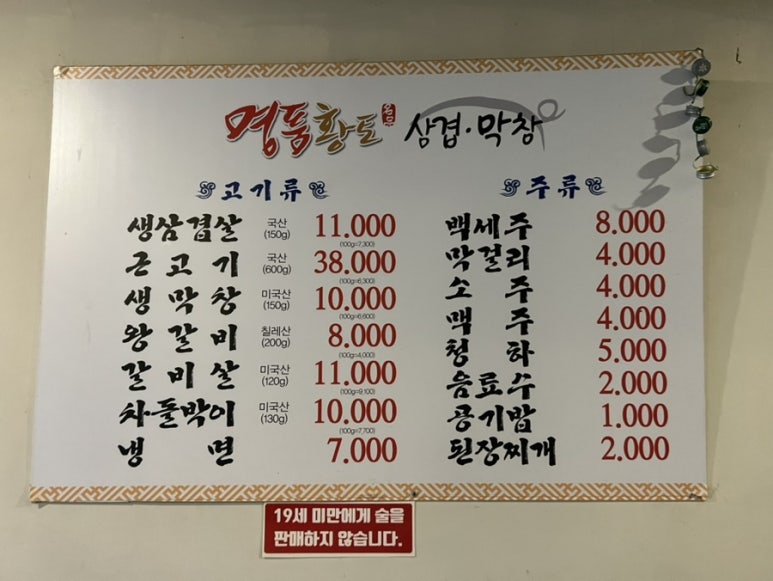 명품황토 삼겹·막창
고기류
생삼겹살 국산 (150g) 11.000 (100g=7,300)
근고기 국산 (600g) 38.000 (100g=6,300)
생막창 미국산 (150g) 10.000 (100g=6,600)
왕갈비 칠레산 (200g) 8.000 (100g=4,000)
갈비살 미국산 (120g) 11.000 (100g=9,100)
차돌박이 미국산 (130g) 10.000 (100g=7,700)
냉면 7.000
주류
백세주 8.000
막걸리 4.000
소주 4.000
맥주 4.000
청하 5.000
음료수 2.000
공기밥 1.000
된장찌개 2.000
19세 미만에게 술을
판매하지 않습니다.